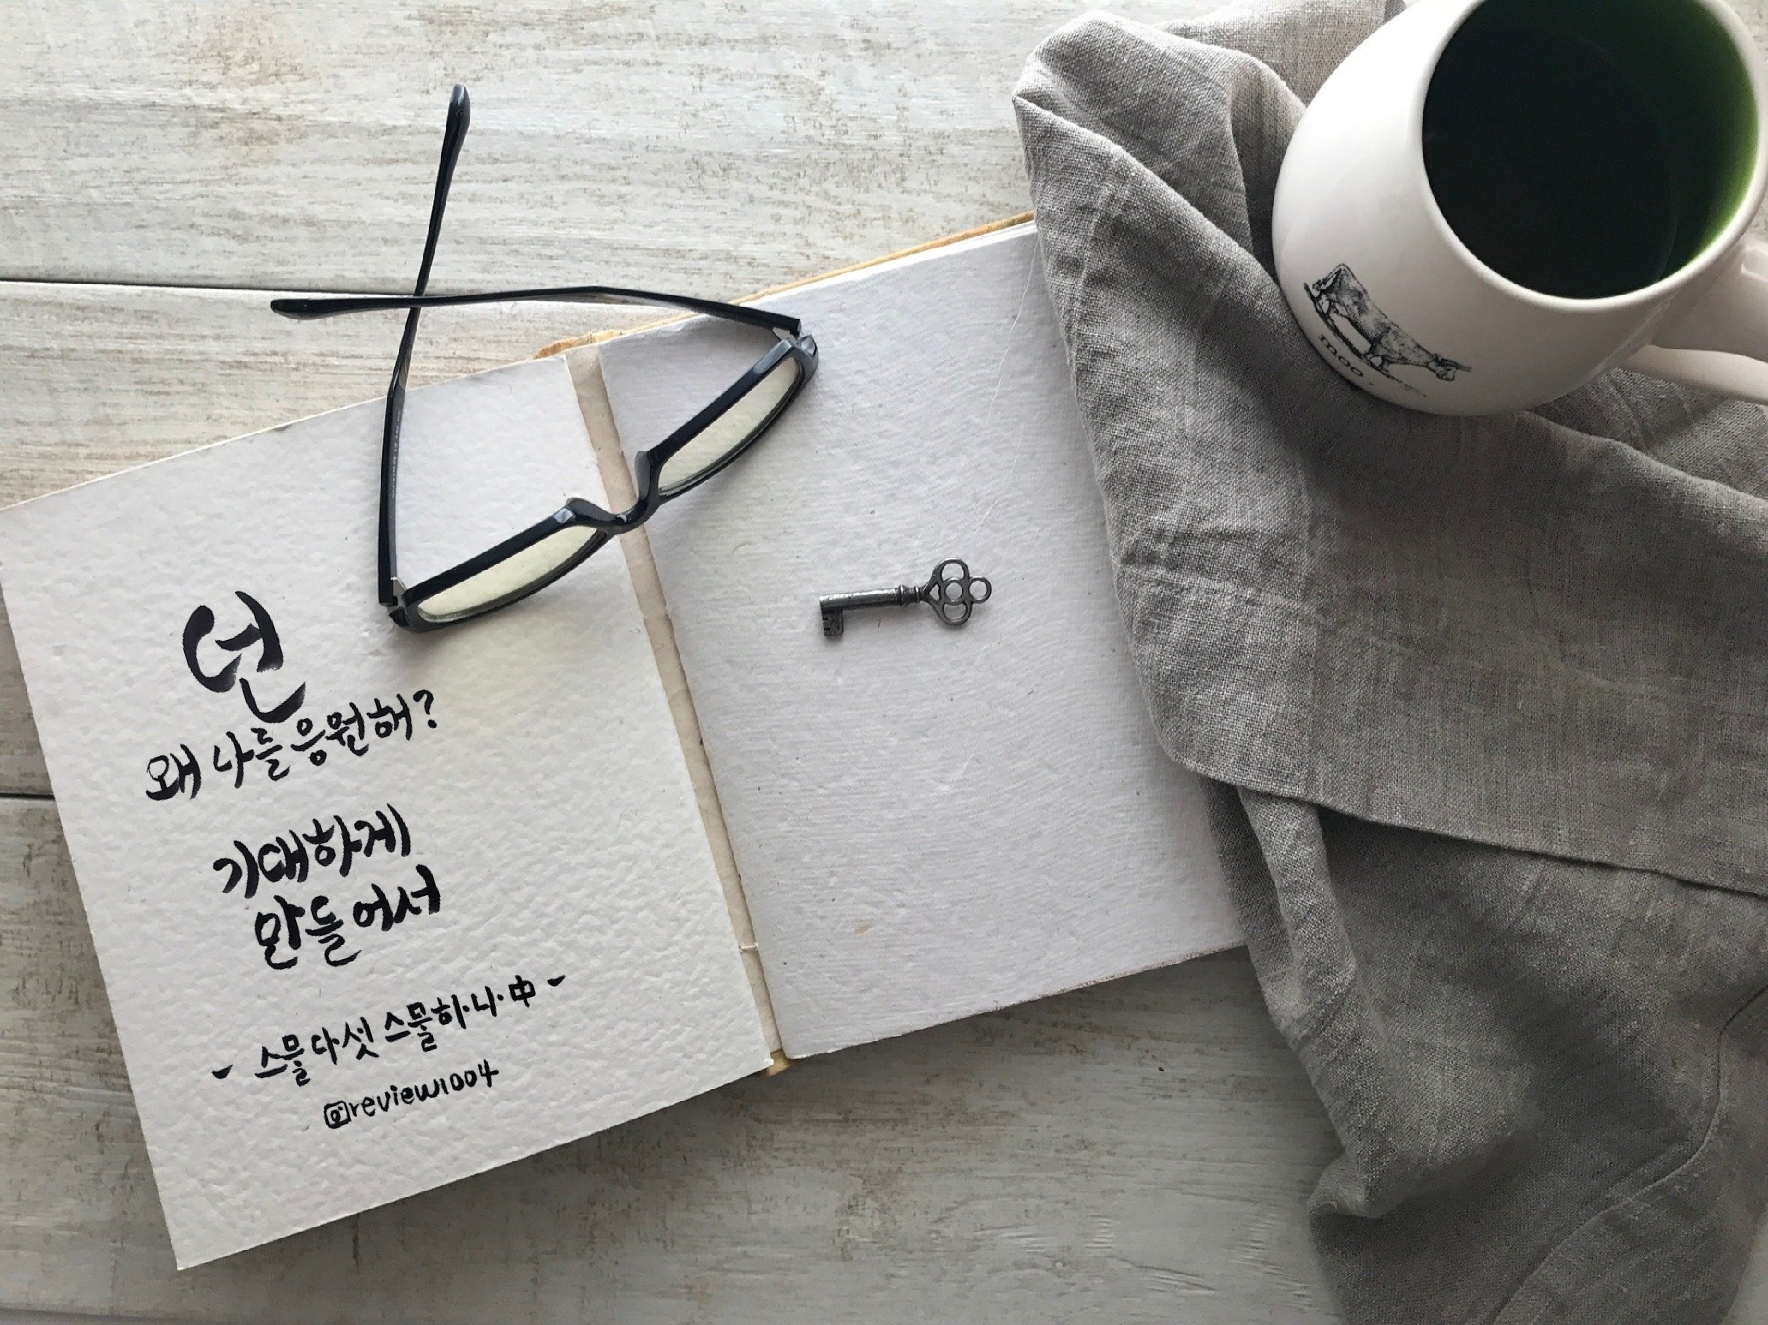 넌
왜 나를 응원해?
기대하게
만들어서
- 스물다섯 스물하나 中 -
@review1004
moo.